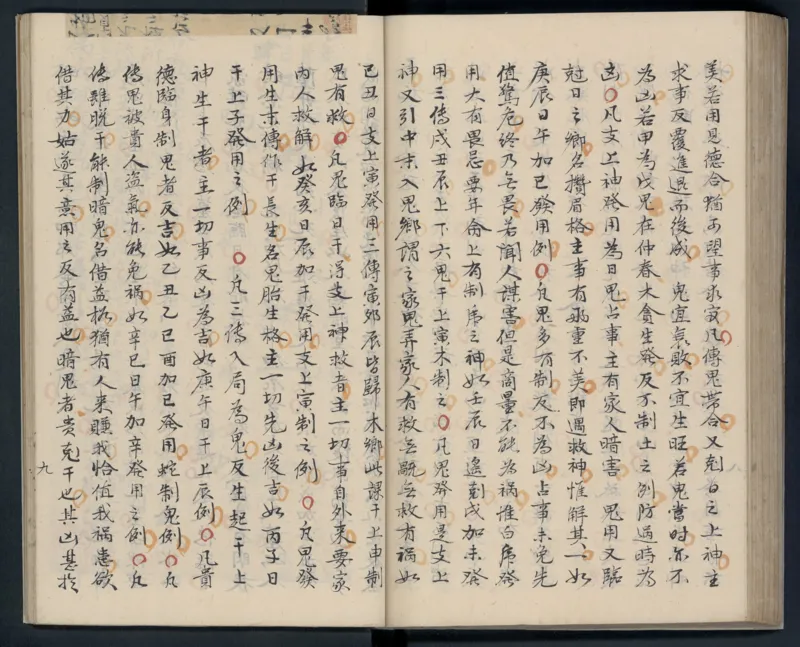 美若用見德合猶可望事求寅凡傳鬼帶合又剋日之上神主
求事反覆進退而後成　鬼宜氣敗不宜生旺若鬼當時亦不
為凶若甲為戊鬼在仲春木貪生發反不制土之例防過時為
凶○凡支上神發用為日鬼占事主有家人暗害　鬼用又臨
尅日之鄉名攢眉格主事有兩重不美即遇救神惟解其一如
庚辰日午加巳發用例○凡鬼多有制反不為凶占事未免先
值驚危終乃無畏若聞人謀害但是商量不能為禍惟白虎發
用大有畏忌要年命上有制虎之神如壬辰日遙剋戌加未發
用三傳戌丑辰上下六鬼干上寅木制之○凡鬼發用是支上
神又引中末入鬼鄉謂之家鬼弄家人有救無虧無救有禍如
己丑日支上寅發用三傳寅夘辰皆歸木鄉此課干上申制
鬼有救○凡鬼臨日干得支上神救者主一切事自外來要家
內人救解如癸亥日辰加干發用支上寅制之例　○凡鬼發
用生末傳作干長生名鬼胎生格主一切先凶後吉如丙子日
干上子發用之例　○凡三傳入局為鬼反生起干上
神生干者主一切事反凶為吉如庚午日干上辰例○凡貴
德臨身制鬼者反吉如乙丑乙巳酉加巳發用蛇制鬼例○凡
傳鬼被貴人盜氣亦能免禍如辛巳日午加辛發用之例○凡
傳雖脫干能制暗鬼名借益格猶有人來賺我恰值我禍患欲
借其力姑遂其意用之反有益也暗鬼者貴剋干也其凶甚於
九